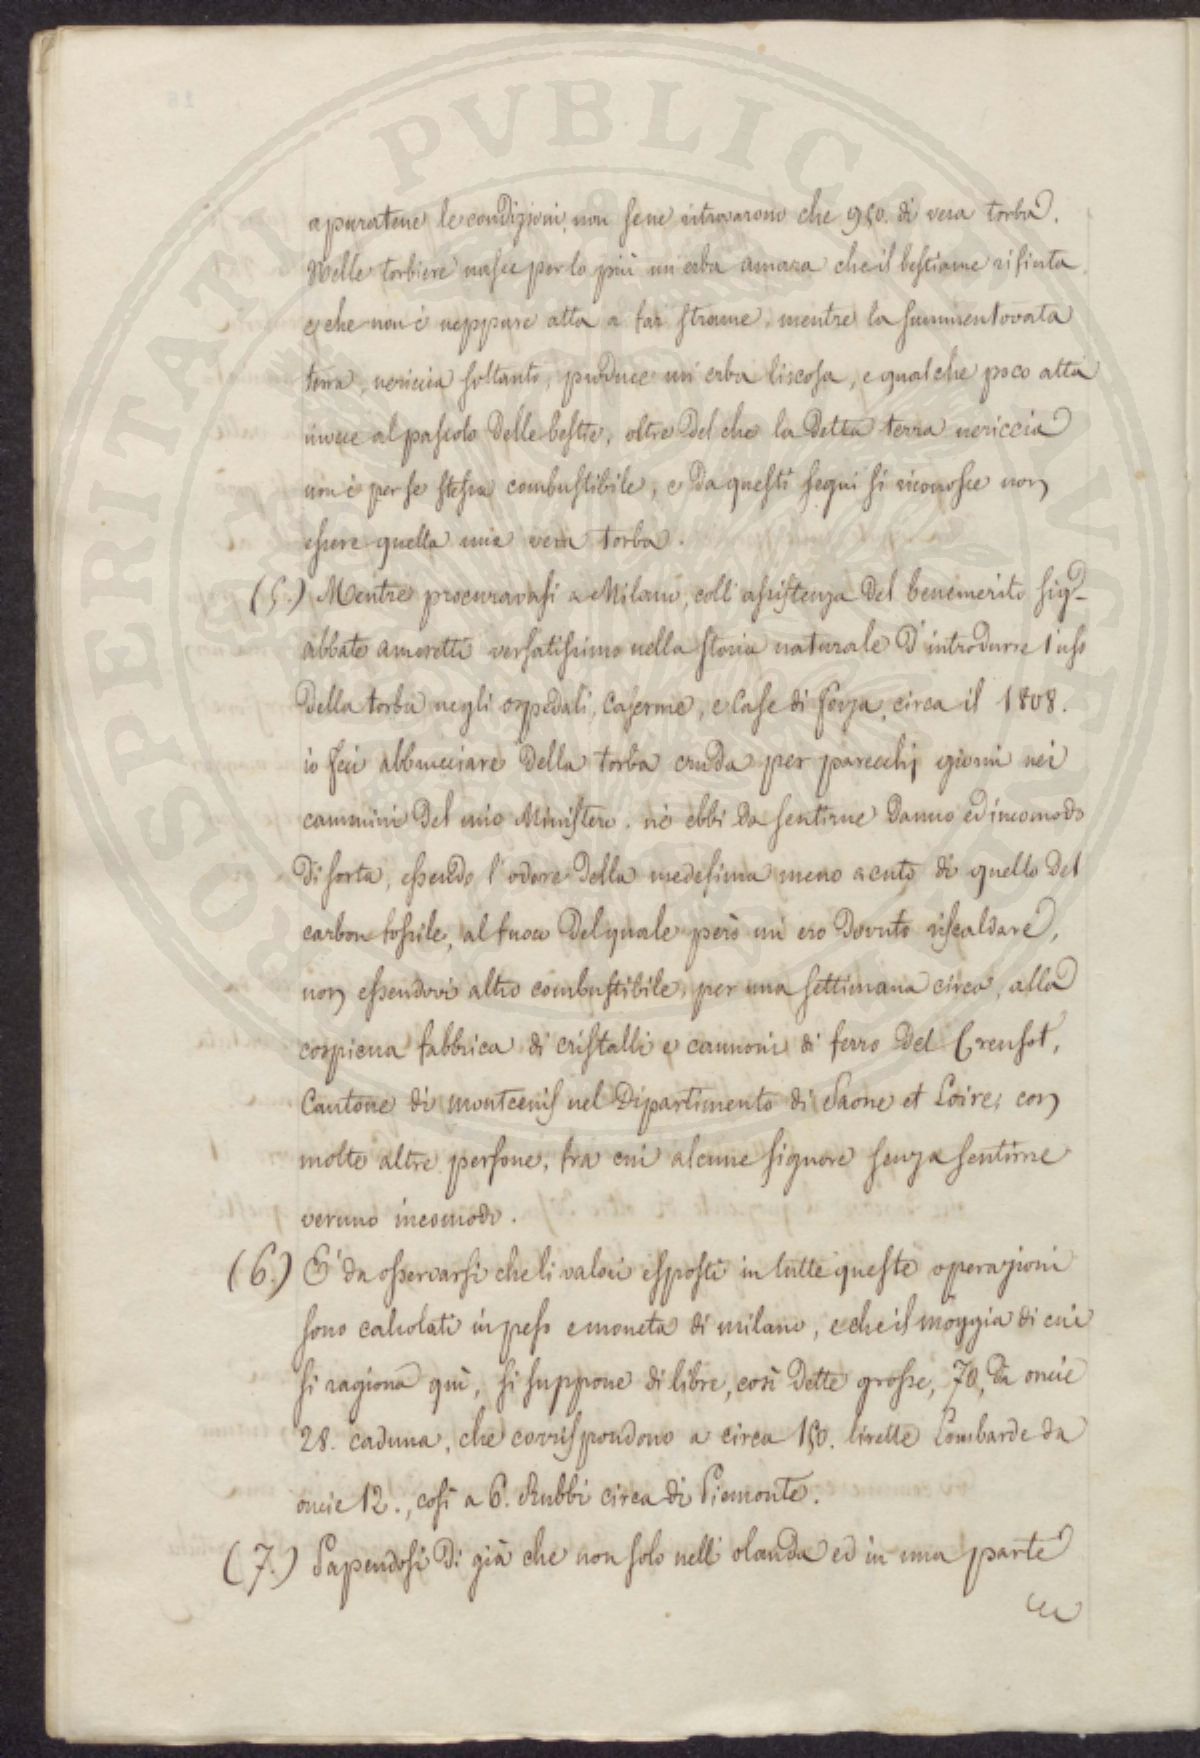 apuratene le condizioni, non sene ritrovarono che 950. di vera torba.
Nelle torbiere nasce per lo più un erba amara che il bestiame rifiuta
e che non è neppure atta a far strame, mentre la summentovata
terra, nericcia soltanto, produce un erba liscosa, e qualche poco atta
invece al pascolo delle bestie, oltre del che la detta terra nericcia
non è per se stessa combustibile, e da questi segni si riconosce non
essere quella una vera torba.
(5.) Mentre procuravasi a Milano, coll assistenza del benemerito sig.
abbate amoretti versatissimo nella storia naturale d'introdurre l'uso
della torba negli ospedali, Caserme, e Case di forza, circa il 1808.
io feci abbrucciare della torba cruda per parecchi giorni nei
cammini del mio Ministero, nè ebbi da sentirne danno ed incomodo
di sorta, essendo l'odore della medesima meno acuto di quello del
carbon fossile, al fuoco del quale però mi ero dovuto riscaldare,
non essendovi altro combustibile, per una settimana circa, alla
cospicua fabbrica di cristalli e cannoni di ferro del Creusot,
Cantone di montcenis nel Dipartimento di Saone et Loire, con
molte altre persone, tra cui alcune signore senza sentirne
veruno incomodo.
(6.) È da osservarsi che li valori esposti in tutte queste operazioni
sono calcolati in peso e moneta di milano, e che il moggia di cui
si ragiona quì, si suppone di libre, così dette grosse, 70, da oncie
28. caduna, che corrispondono a circa 150. lirette Lombarde da
oncie 12., così a 6. Rubbi circa di Piemonte.
(7.) Sapendosi di già che non solo nell olanda ed in una parte